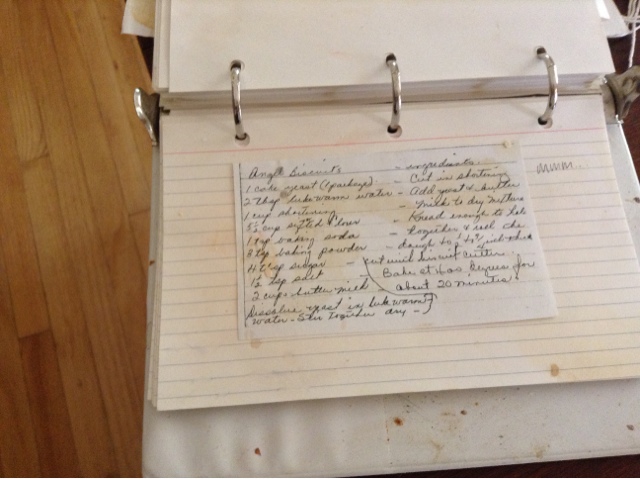 Angel Biscuits
1 cake yeast (1 package)
2 tbsp lukewarm water
1 cup shortening
5½ cup sifted flour
1 tsp baking soda
3 tsp baking powder
4 tbsp sugar
1½ tsp salt
2 cups butter milk
Dissolve yeast in lukewarm
water - Stir together dry -
- ingredients.
- Cut in shortening
- Add yeast & butter
milk to dry mixture
- Knead enough to hold
together & roll the
dough to inch thick
cut with biscuit cutter.
Bake at 400 degrees for
about 20 minutes.
mmm...